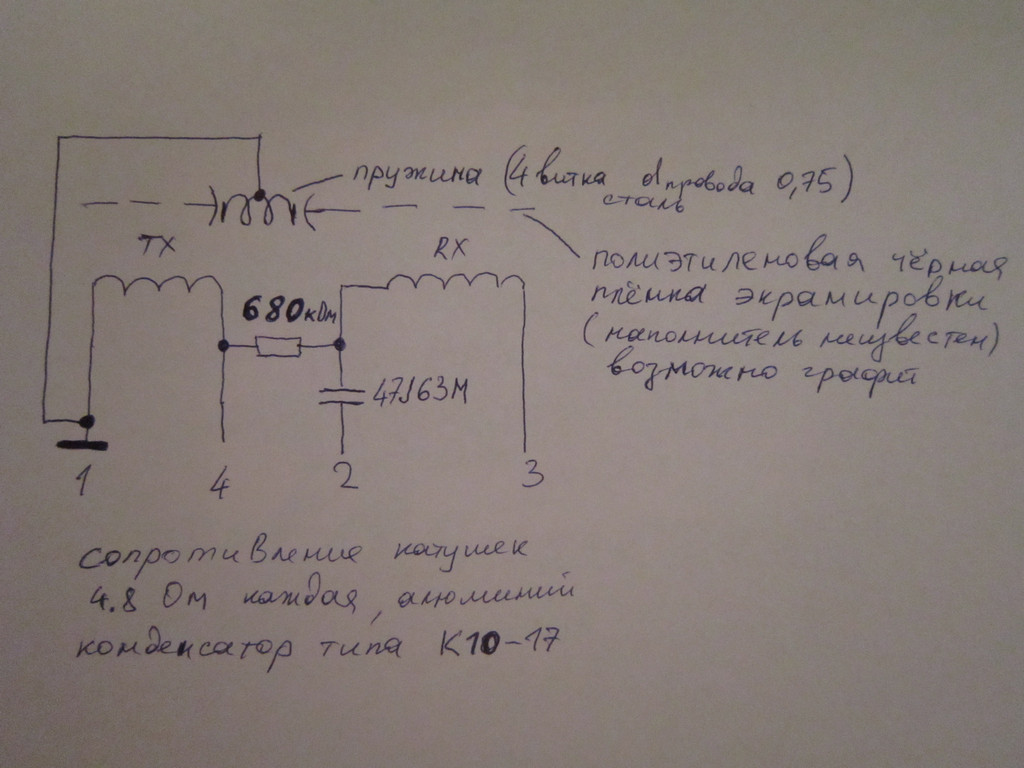 пружина (4 витка d провода 0,75)
сталь
TX
RX
полиэтиленовая чёрная
плёнка экранировки
(наполнитель неизвестен)
возможно графит
680кОм
47J63М
1
4
2
3
сопротивление катушек
4.8 Ом каждая, алюминий
конденсатор типа К10-17